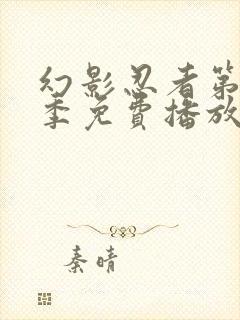 幻影忍者第
季免費播放
秦晴